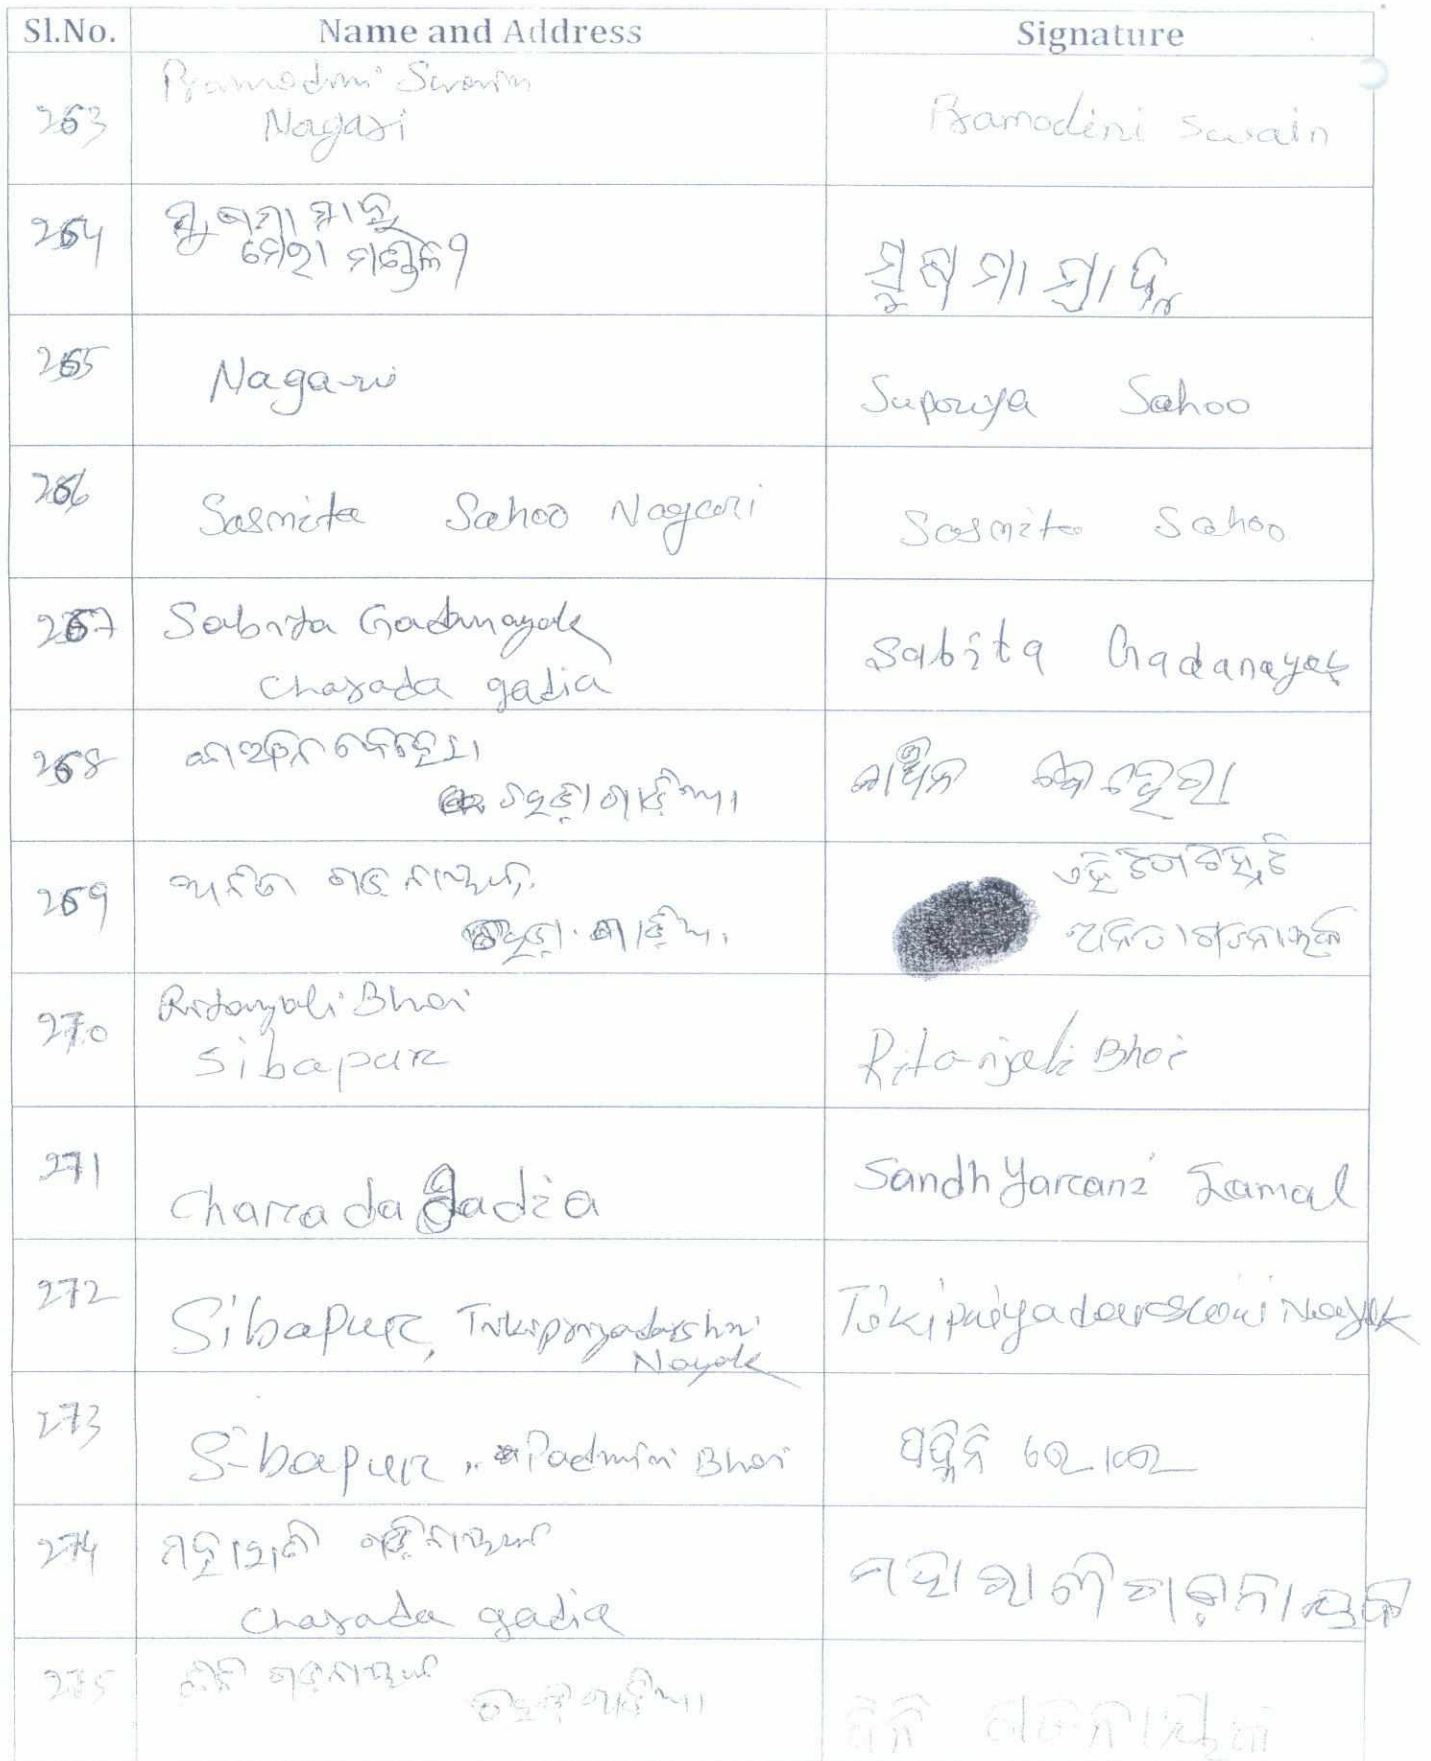 Sl.No. Name and Address Signature
263 Pramodini Swain
Nagari
Pramodini Swain
264 ସୁଷମା ସାହୁ
ସୁଷମା ସାହୁ
265 Nagari
Supriya Sahoo
266 Sasmita Sahoo Nagari
Sasmita Sahoo
267 Sabita Gadanayak
Charada gadia
Sabita Gadanayak
268
ଚହଡା ଗାଡ଼ିଆ
ବେହେରା
269 ଅନିତା ଗଡନାୟକ
ଗାଡ଼ିଆ
ଏହି ଟିପ ଚିହ୍ନଟି
ଅନିତା ଗଡନାୟକ
270 Ritanjali Bhoi
Sibapur
Ritanjali Bhoi
271 Charada Gadia
Sandhyarani Jamal
272 Sibapur,
Nayak
Nayak
273 Sibapur, Padmini Bhoi
ପଦ୍ମିନି ଭୋଇ
274 ମହାରାଣୀ ଗଡ଼ନାୟକ
Charada gadia
ମହାରାଣୀ ଗଡ଼ନାୟକ
275 ଗଡ଼ନାୟକ
ଗାଡ଼ିଆ
ଗଡନାୟକ